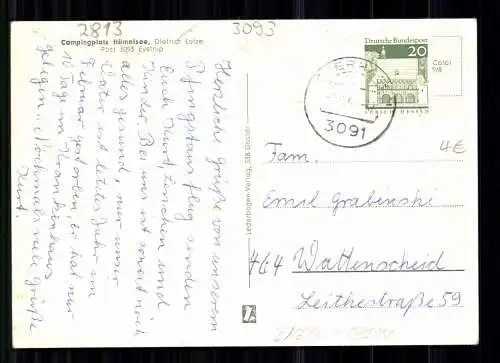 2813
3093
Campingplatz Hämelsee, Dietrich Lotze
Post 3093 Eystrup
Herzliche Grüße von unserem
Pfingstausflug senden
Euch Kurt, und
Kinder. Bei uns ist soweit noch
alles gesund, nur unser
Vater ist letztes Jahr im
Februar gestorben, er hat nur
10 Tage im Krankenhaus
gelegen. Nochmals viele Grüße
Kurt.
Lederbogen-Verlag, 358 Goslar
Deutsche Bundespost
20
3091
Color
4€
Fam.
Emil Grabinski
464 Wattenscheid
Leithestraße 59